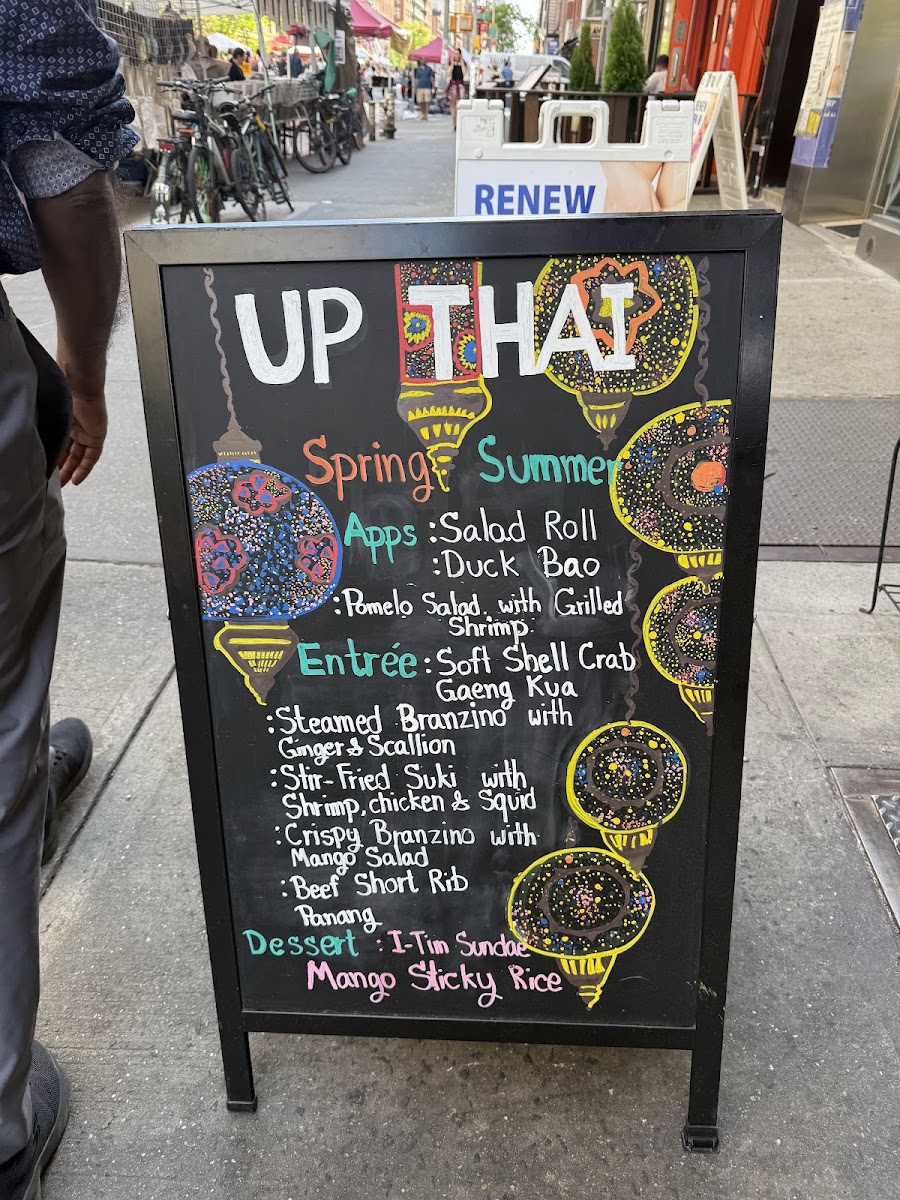 RENEW
UP THAI
Spring Summer
Apps :Salad Roll
:Duck Bao
:Pomelo Salad. with Grilled
Shrimp.
Entrée :Soft Shell Crab
Gaeng Kua
:Steamed Branzino with
Ginger & Scallion
:Stir-Fried Suki with
Shrimp, chicken & Squid
:Crispy Branzino with
Mango Salad
:Beef Short Rib
Panang
Dessert :I-Tim Sundae
Mango Sticky Rice